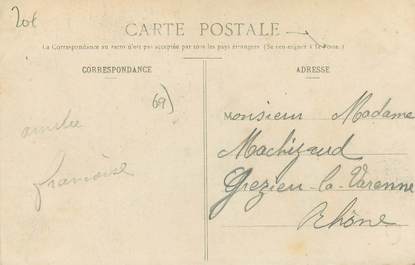 20€
CARTE POSTALE
La Correspondance au recto n'est pas acceptée par tous les pays étrangers (Se renseigner à la Poste.)
CORRESPONDANCE
ADRESSE
69)
amitié
françoise
Monsieur Madame
Machizaud
Grezieu-la-Varenne
Rhône